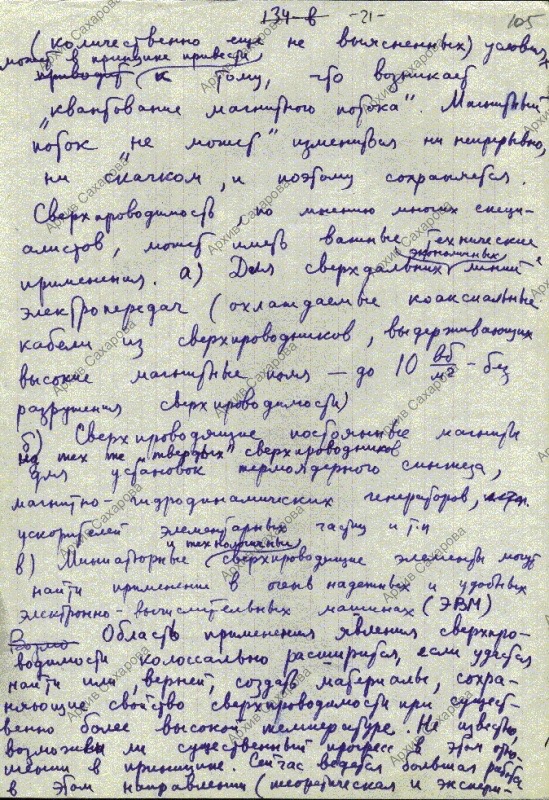 134-в -21- 105
(количественно еще не выясненных) условиях
может в принципе привести
приводят к тому, что возникает
"квантование магнитного потока". Магнитный
поток "не может" измениться ни непрерывно,
ни скачком, и поэтому сохраняется.
Сверхпроводимость, по мнению многих специ-
алистов, может иметь важные технические
применения. а) Для сверхдальних экономичных линий
электропередач (охлаждаемые коаксиальные
кабели из сверхпроводников, выдерживающих
высокие магнитные поля — до 10 вб/м² - без
разрушения сверхпроводимости)
б) Сверхпроводящие постоянные магниты
на тех же "твердых" сверхпроводников
для установок термоядерного синтеза,
магнитно-гидродинамических генераторов,
ускорителей элементарных частиц и т-п
в) Миниатюрные и технологичные сверхпроводящие элементы могут
найти применение в очень надежных и удобных
электронно-вычислительных машинах (ЭВМ)
Область применения явления сверхпро-
водимости колоссально расширится, если удастся
найти или, верней, создать материалы, сохра-
няющие свойство сверхпроводимости при сущест-
венно более высокой температуре. Не известно,
возможен ли существенный прогресс в этом отно-
шении в принципе. Сейчас ведется большая работа
в этом направлении (теоретическая и экспери-
Архив Сахарова